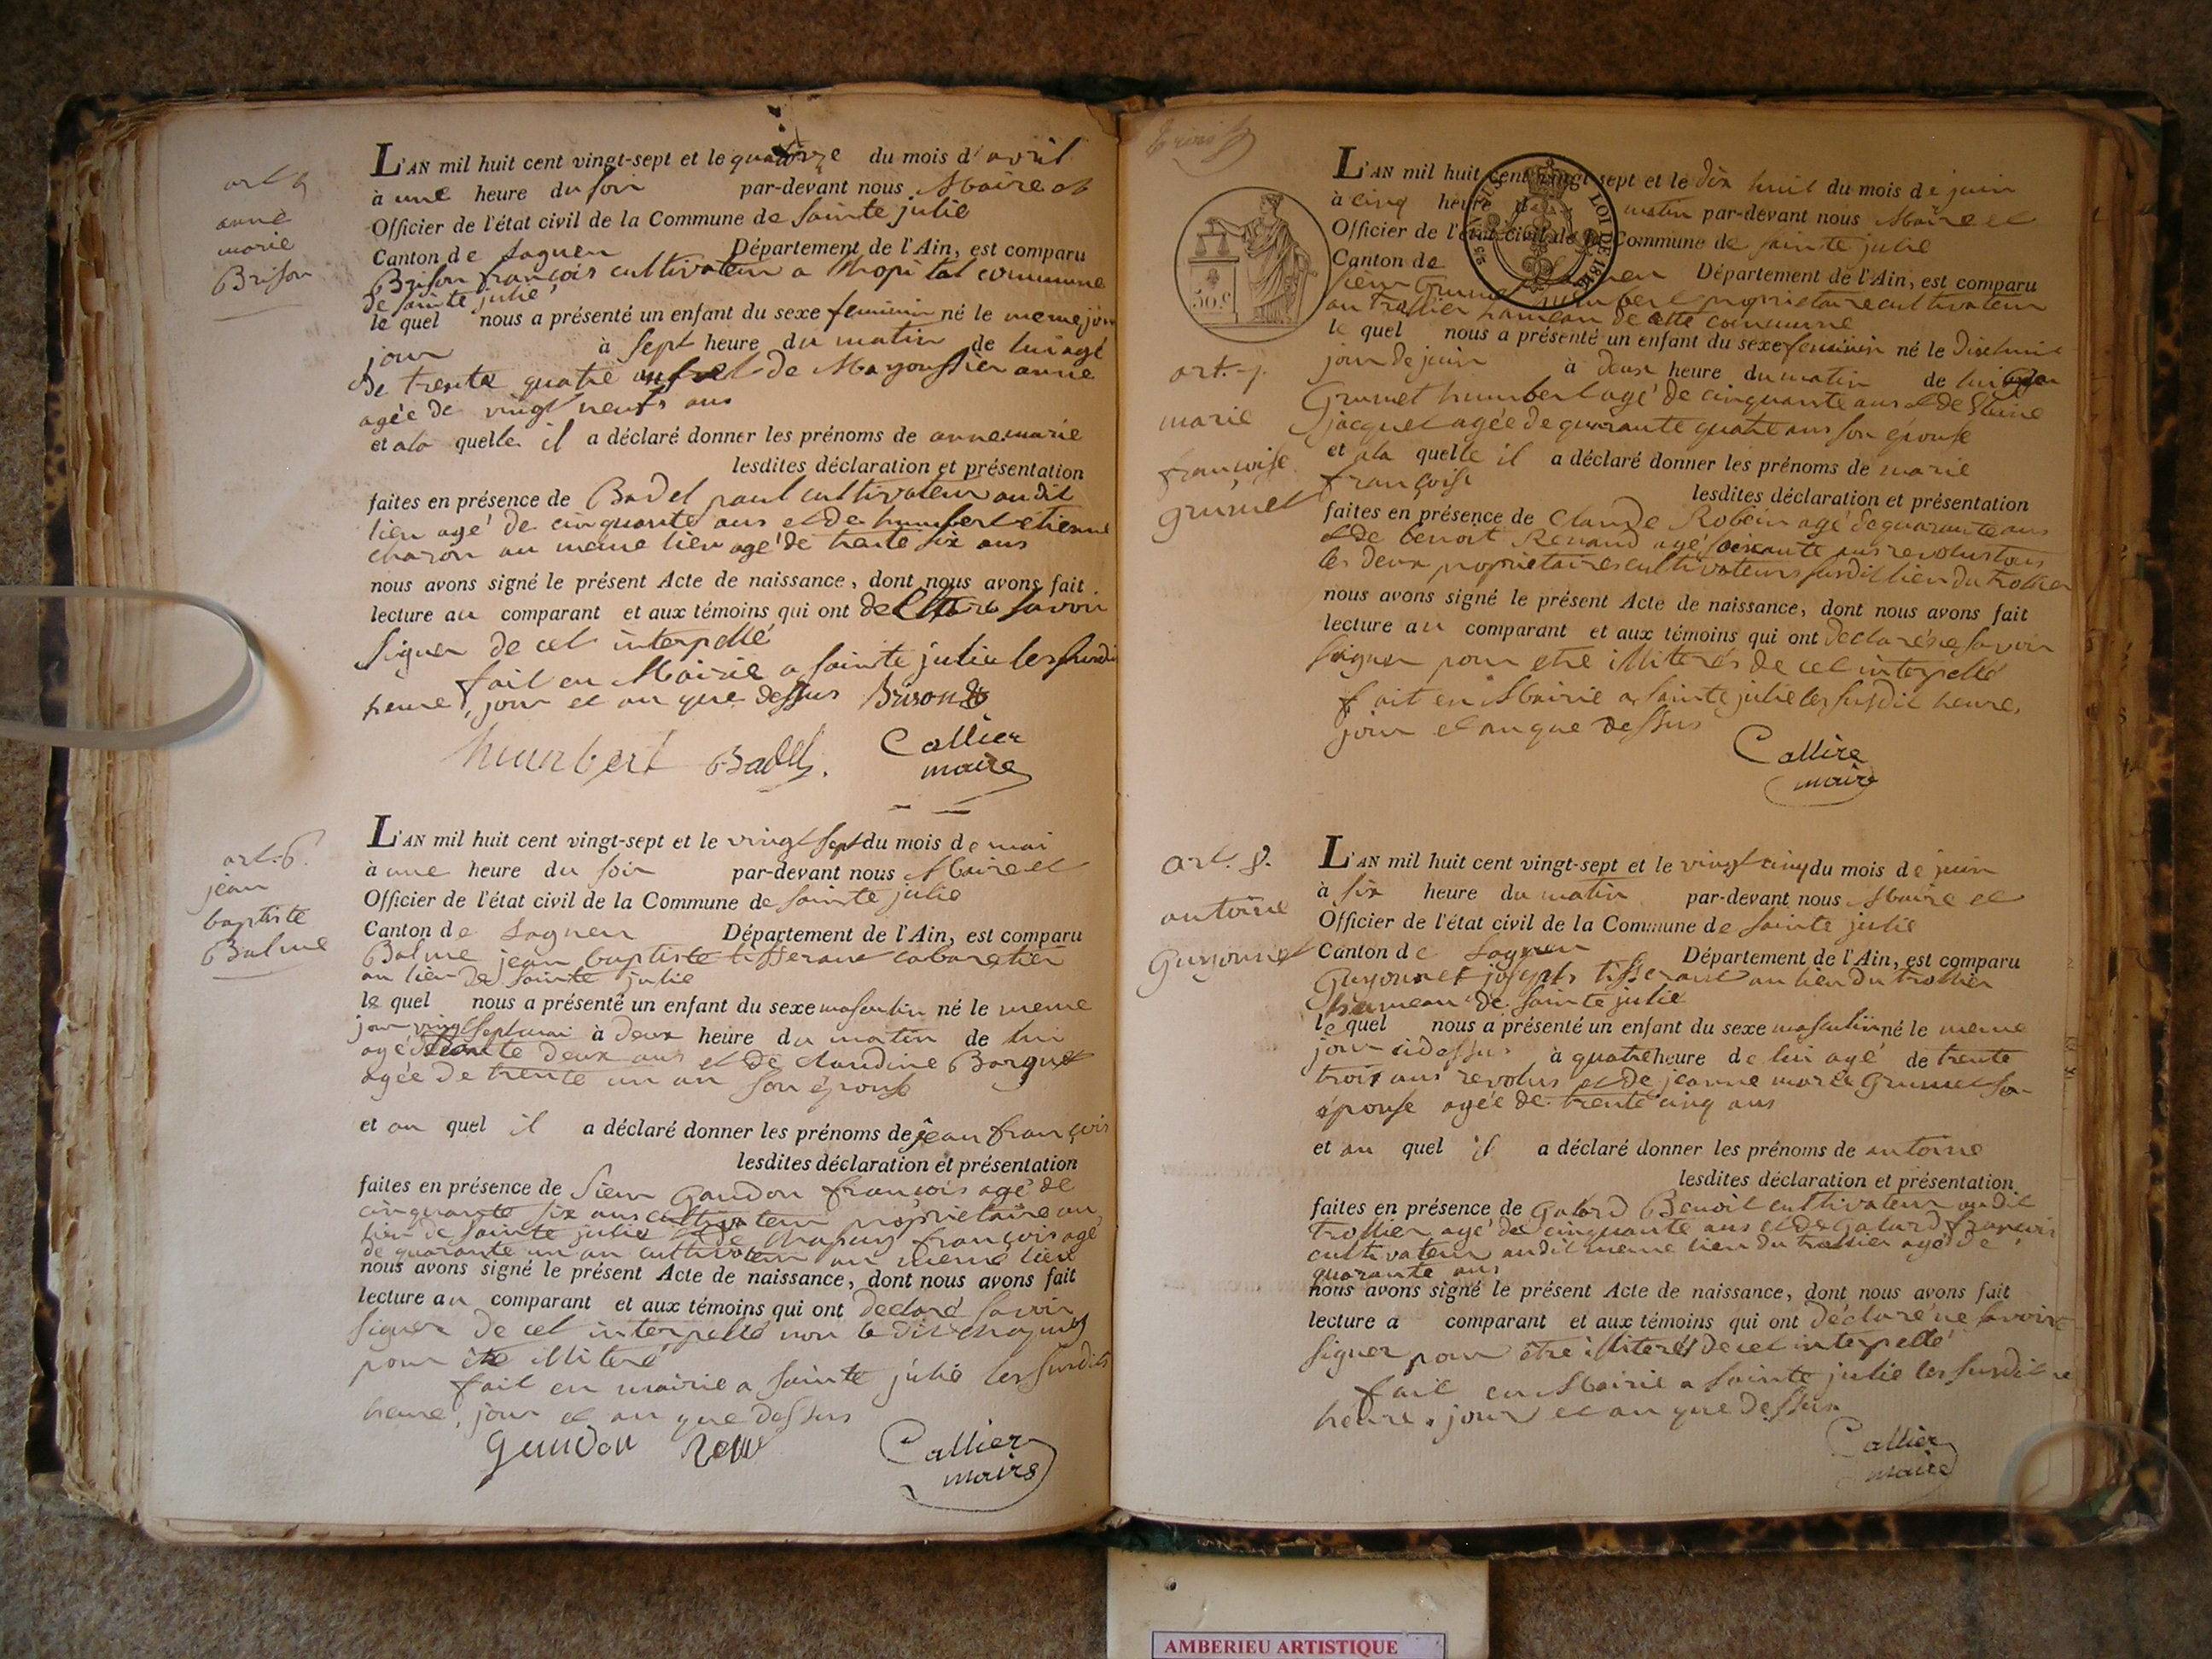 art 5
anne
marie
Brison
L'AN mil huit cent vingt-sept et le quatorze du mois d'avril
à une heure du soir par-devant nous Maire et
Officier de l'état civil de la Commune de Sainte julie
Canton de Lagneu Département de l'Ain, est comparu
Brison françois cultivateur a l'hopital commune
de sainte julie
le quel nous a présenté un enfant du sexe feminin né le meme jour
jour à sept heure du matin de lui agé
de trente quatre ans et de Mayoussier anne
agée de vingt neufs ans
et a la quelle il a déclaré donner les prénoms de anne marie
lesdites déclaration et présentation
faites en présence de Badel paul cultivateur au dit
lieu agé de cinquante ans et de humbert étienne
charon au meme lieu agé de trente six ans
nous avons signé le présent Acte de naissance, dont nous avons fait
lecture au comparant et aux témoins qui ont declaré savoir
signer de cet interpellé
fait en Mairie a sainte julie les susdit
heure, jour et an que dessus Brison
humbert Badel Callier
maire
art. 6.
jean
baptiste
Balme
L'AN mil huit cent vingt-sept et le vingt sept du mois de mai
à une heure du soir par-devant nous Maire et
Officier de l'état civil de la Commune de sainte julie
Canton de Lagneu Département de l'Ain, est comparu
Balme jean baptiste tisserant cabaretier
au lieu de sainte julie
le quel nous a présenté un enfant du sexe masculin né le meme
jour vingt sept mai à deux heure du matin de lui
agé de trente deux ans et de claudine Barquet
agée de trente un an son épouse
et au quel il a déclaré donner les prénoms de jean françois
lesdites déclaration et présentation
faites en présence de sieur Gandon françois agé de
cinquante six ans cultivateur propriétaire au
lieu de sainte julie et de Chapuy françois agé
de quarante un an cultivateur au meme lieu
nous avons signé le présent Acte de naissance, dont nous avons fait
lecture au comparant et aux témoins qui ont declaré savoir
signer de cet interpellé non le dit chapuy
pour être illiteré
fait en mairie a sainte julie les susdits
heure, jour et an que dessus
Gandon Callier
maire
LOI DE 1816
50 c
art. 7.
marie
françoise
grumet
L'AN mil huit cent vingt-sept et le dix huit du mois de juin
à cinq heure du matin par-devant nous Maire et
Officier de l'état civil de la Commune de sainte julie
Canton de Lagneu Département de l'Ain, est comparu
sieur Grumet humbert propriétaire cultivateur
au Trollier hameau de cette commune
le quel nous a présenté un enfant du sexe feminin né le dixhuit
jour de juin à deux heure du matin de lui
Grumet humbert agé de cinquante ans et de
jacquet agée de quarante quatre ans son épouse
et a la quelle il a déclaré donner les prénoms de marie
françoise
lesdites déclaration et présentation
faites en présence de Claude Robin agé de quarante ans
et de benoit Renaud agé soixante ans revolus tous
les deux propriétaires cultivateurs susdit lieu du trollier
nous avons signé le présent Acte de naissance, dont nous avons fait
lecture au comparant et aux témoins qui ont declaré ne savoir
signer pour etre illiterés de cet interpellé
fait en Mairie a sainte julie les susdit heure,
jour et an que dessus
Callier
maire
art. 8.
antoine
Guyonnet
L'AN mil huit cent vingt-sept et le vingt cinq du mois de juin
à six heure du matin par-devant nous Maire et
Officier de l'état civil de la Commune de sainte julie
Canton de Lagneu Département de l'Ain, est comparu
Guyonnet joseph tisserant au lieu du trollier
hameau de sainte julie
le quel nous a présenté un enfant du sexe masculin né le meme
jour cidessus à quatre heure de lui agé de trente
trois ans revolus et de jeanne marie Grumet son
épouse agée de trente cinq ans
et au quel il a déclaré donner les prénoms de antoine
lesdites déclaration et présentation
faites en présence de Galard Benoit cultivateur au dit
trollier agé de cinquante ans et de Galard françois
cultivateur au dit meme lieu du trollier agé de
quarante ans
nous avons signé le présent Acte de naissance, dont nous avons fait
lecture a comparant et aux témoins qui ont déclaré ne savoir
signer pour être illiterés de cet interpellé
fait en Mairie a sainte julie les susdit
heure, jour et an que dessus
Callier
maire
AMBERIEU ARTISTIQUE